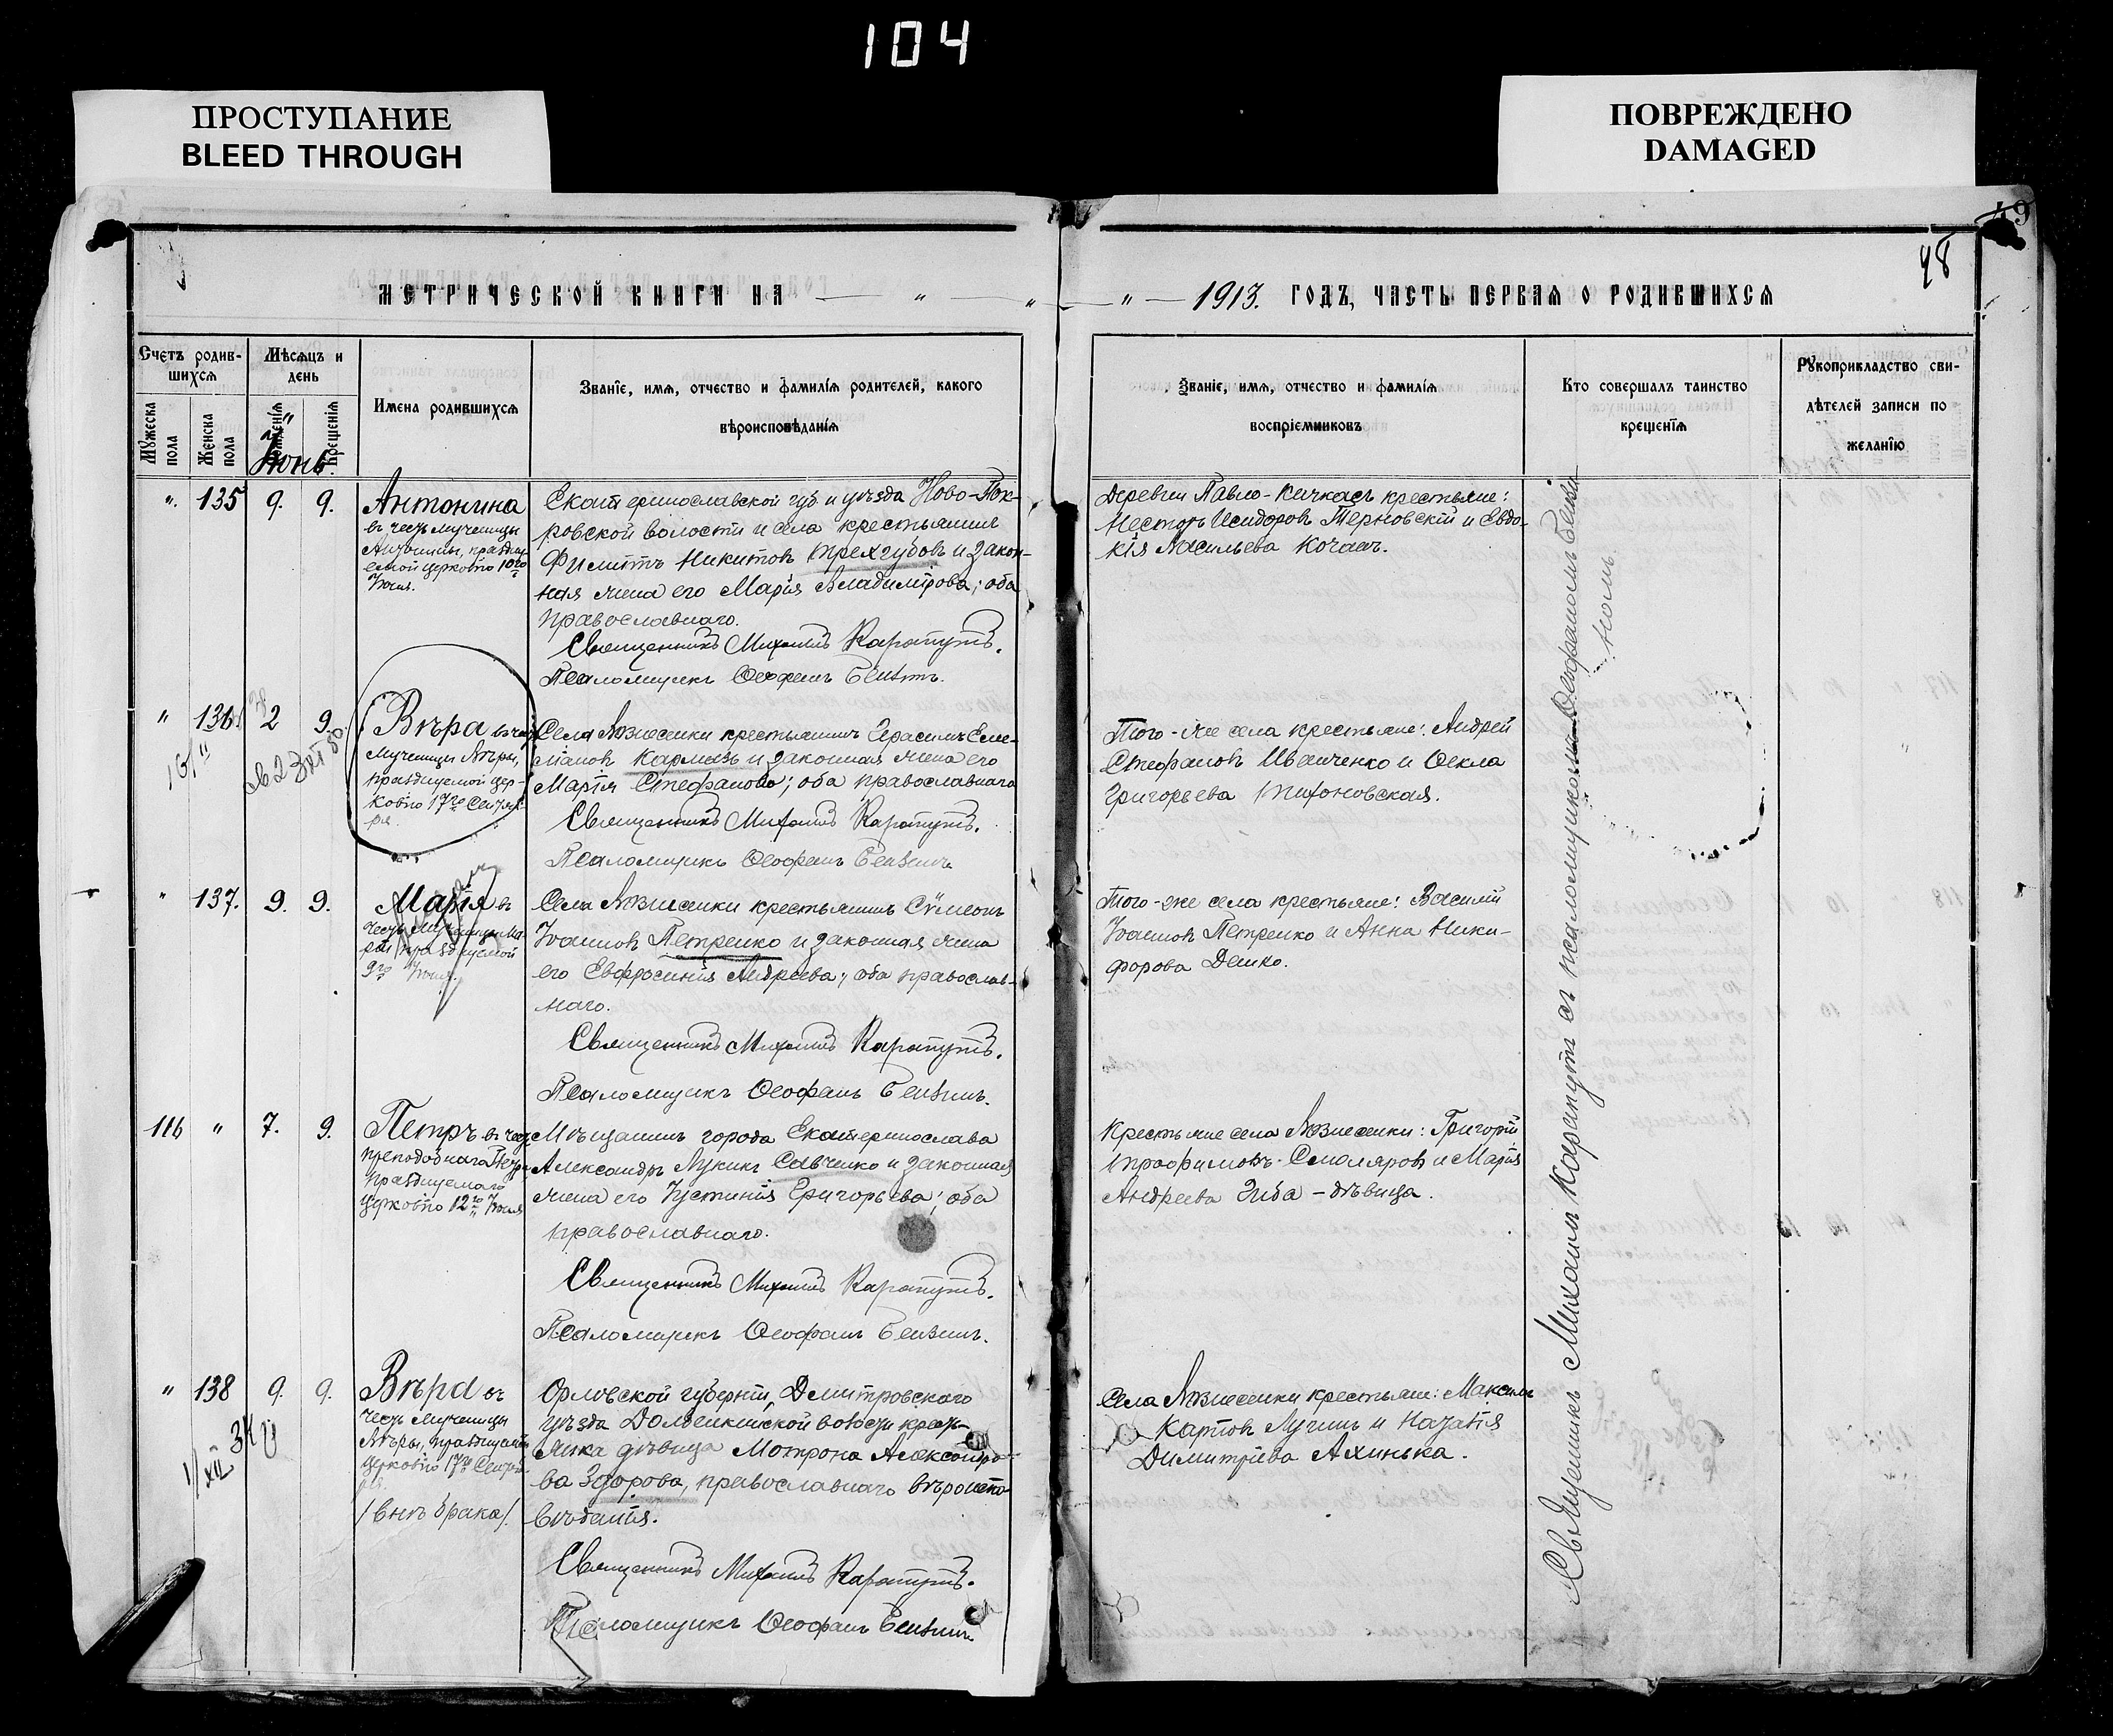 104
ПРОСТУПАНИЕ
BLEED THROUGH
ПОВРЕЖДЕНО
DAMAGED
49
48
МЕТРИЧЕСКОЙ КНИГИ НА
1913. ГОДЪ, ЧАСТЬ ПЕРВАЯ О РОДИВШИХСЯ
Счетъ родив-
шихся
Мужеска пола
Женска пола
Мѣсяцъ и
день
Рожденія
Крещенія
Имена родившихся
Званіе, имя, отчество и фамилія родителей, какого
вѣроисповѣданія
Званіе, имя, отчество и фамилія
воспріемниковъ
Кто совершалъ таинство
крещенія
Рукоприкладство сви-
дѣтелей записи по
желанію
Іюнь.
" 135 9. 9.
Антонина
въ честь мученицы
Антонины, праздну-
емой церковію 10го
Іюня.
Екатеринославской губ. и уѣзда Ново-Пок-
ровской волости и села крестьянинъ
Никитовъ Трехгубовъ и закон-
ная жена его Марія Владимірова; оба
православнаго.
Священникъ Михаилъ Карапутъ.
Псаломщикъ Ѳеофанъ
Деревни Павло-Кичкасъ крестьяне:
Несторъ Исидоровъ Терновскій и Евдо-
кія Васильева
" 136 2 9.
Вѣра въ честь
мученицы Вѣры,
празднуемой цер-
ковію 17го Сентяб-
ря.
Села Вознесенки крестьянинъ Герасимъ Еме-
ліановъ Кармазь и законная жена его
Марія Стефанова; оба православнаго
Священникъ Михаилъ Карапутъ.
Псаломщикъ Ѳеофанъ
Того-же села крестьяне: Андрей
Стефановъ Иванченко и Ѳекла
Григорьева Тихоновская.
" 137. 9. 9.
Марія въ
честь мученицы Ма-
ріи, празднуемой
9го Іюня.
Села Вознесенки крестьянинъ Сѵмеонъ
Іоанновъ Петренко и законная жена
его Евфросинія Андреева; оба православ-
наго.
Священникъ Михаилъ Карапутъ.
Псаломщикъ Ѳеофанъ
Того-же села крестьяне: Василій
Іоанновъ Петренко и Анна Ники-
форова Дешко.
116 " 7. 9.
Петръ въ честь
преподобнаго Петра,
празднуемаго
церковію 12го Іюня
Мѣщанинъ города Екатеринослава
Александръ Лукинъ Савченко и законная
жена его Іустинія Григорьева; оба
православнаго.
Священникъ Михаилъ Карапутъ.
Псаломщикъ Ѳеофанъ
Крестьяне села Вознесенки: Григорій
Трофимовъ Смоляровъ и Марія
Андреева Зиба – дѣвица.
" 138 9. 9.
Вѣра въ
честь мученицы
Вѣры, празднуемой
церковію 17го Сентяб-
ря.
/внѣ брака/.
Орловской губерніи, Дмитровскаго
уѣзда волости кресть-
янка дѣвица Мотрона Александро-
ва Здорова, православнаго вѣроиспо-
вѣданія.
Священникъ Михаилъ Карапутъ.
Псаломщикъ Ѳеофанъ
Села Вознесенки крестьяне: Максимъ
Карповъ Лучинъ и Наталія
Димитріева Ахинька.
Священникъ Михаилъ Карапутъ съ псаломщикомъ Ѳеофаномъ